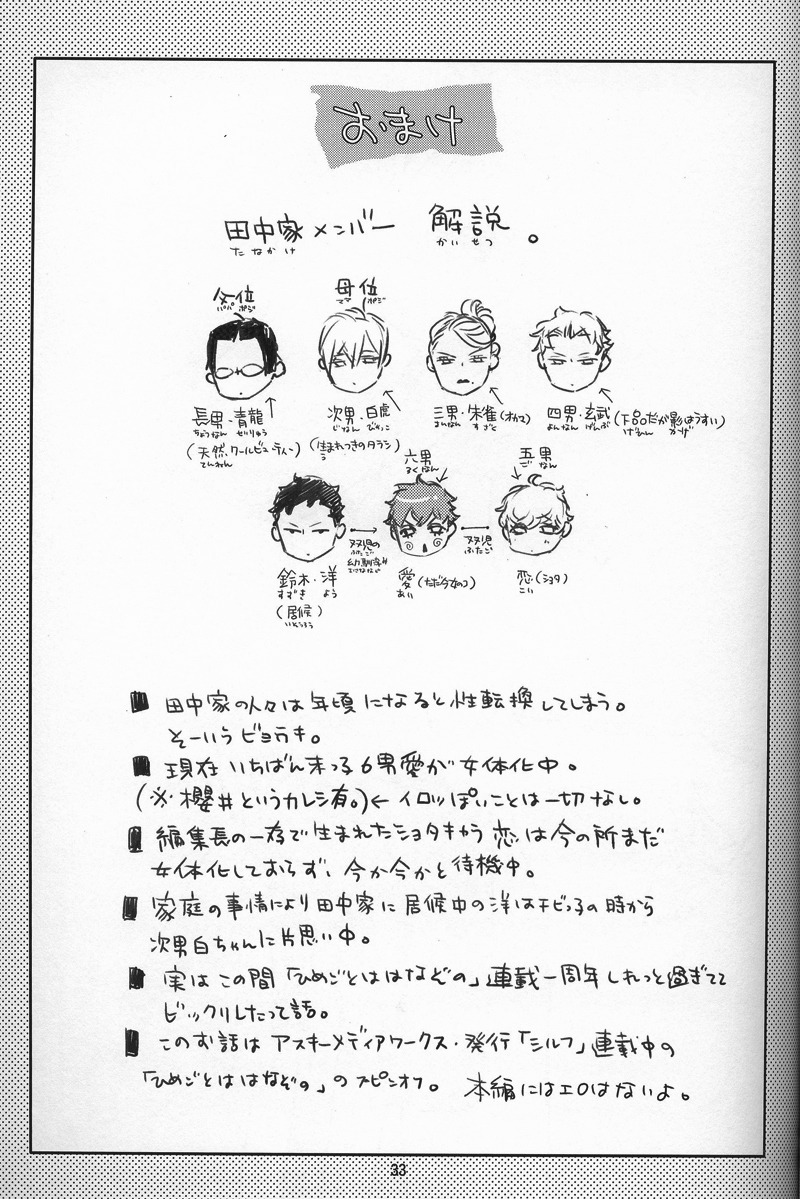 おまけ
田中家メンバー 解説。
たなかけ かいせつ
父位
パパ ポジ
母位
ママ ポジ
長男・青龍
ちょうなん せいりゅう
(天然、クールビューティー)
てんねん
次男・白虎
じなん びゃっこ
(生まれつきのタラシ)
う
三男・朱雀(オカマ)
さんなん すざく
四男・玄武(下品だが影はうすい)
よんなん げんぶ げひん かげ
六男
ろくなん
五男
ごなん
鈴木・洋
すずき よう
(居候)
いそうろう
双児の
ふたご
幼馴染
おさななじみ
愛(ただ今女のコ)
あい
双児
ふたご
恋(ショタ)
こい
■ 田中家の人々は年頃になると性転換してしまう。
そーいうビョーキ。
■ 現在いちばん末っ子6男愛が女体化中。
(※櫻井というカレシ有。)← イロッぽいことは一切なし。
■ 編集長の一存で生まれたショタキャラ恋は今の所まだ
女体化しておらず、今か今かと待機中。
■ 家庭の事情により田中家に居候中の洋はチビっ子の時から
次男白ちゃんに片思い中。
■ 実はこの間「ひめごとははなぞの」連載一周年しれっと過ぎてて
ビックリしたって話。
■ このお話はアスキーメディアワークス・発行「シルフ」連載中の
「ひめごとははなぞの」のスピンオフ。 本編にはエロはないよ。
33